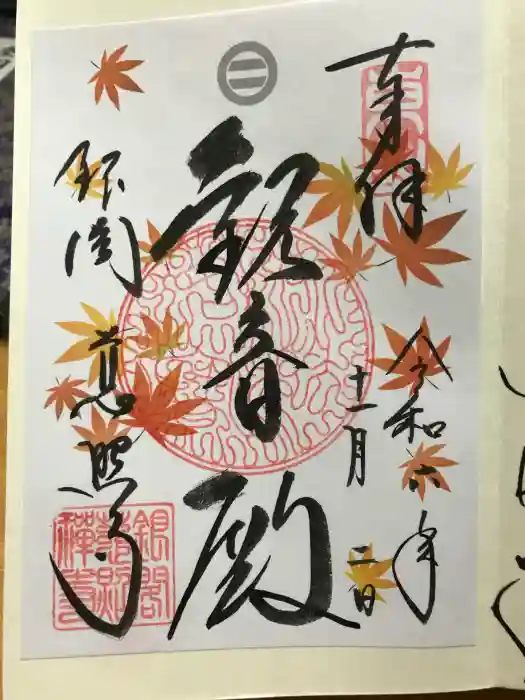 奉拝
令和六年
十一月二日
観音殿
銀閣慈照寺
銀閣
慈照
禪寺